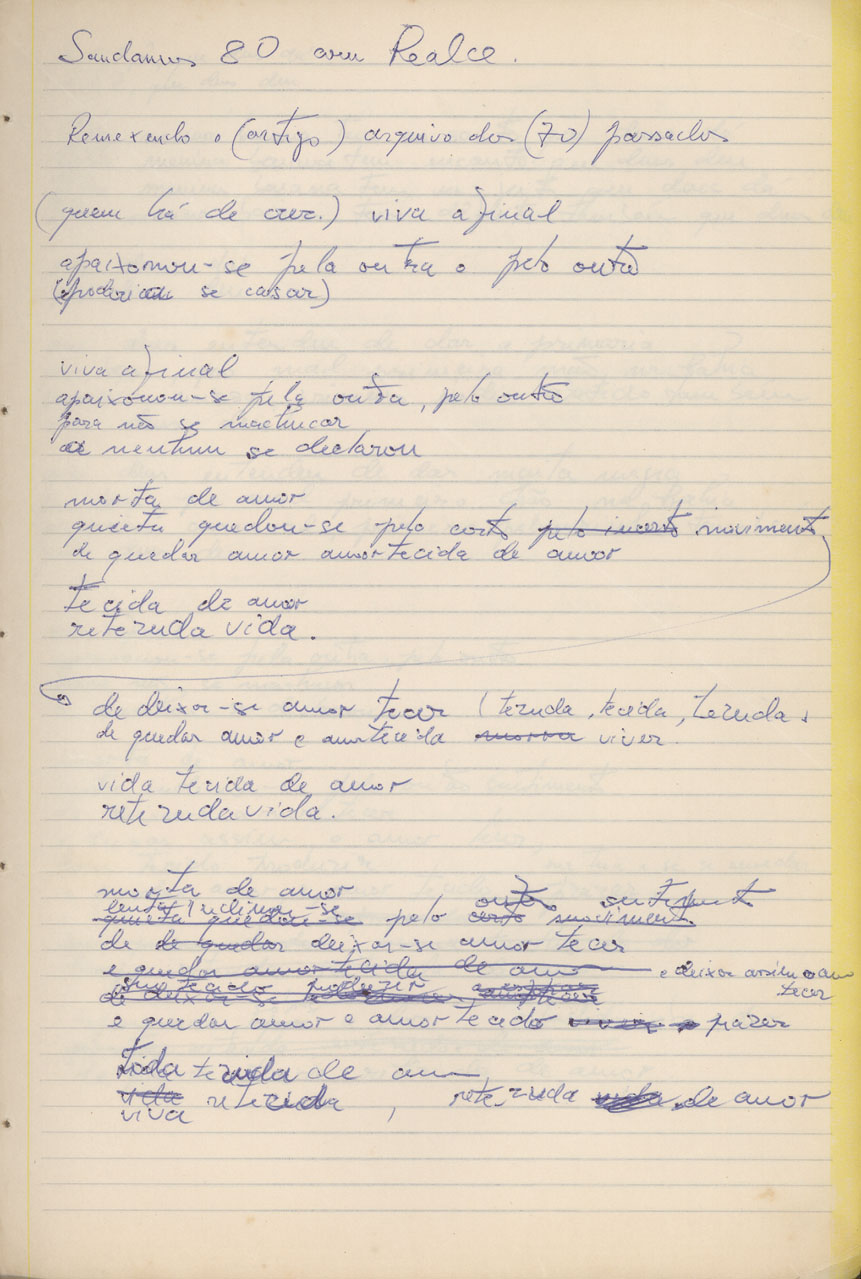 Saudamos 80 com Realce.
Remexendo o (artigo) arquivo dos (70) passados
(quem há de crer.) viva afinal
apaixonou-se pela outra o pelo outro
se casar)
viva afinal
apaixonou-se pela outra, pelo outro
para não se machucar
nenhum se declarou
morta de amor
quieta quedou-se pelo certo pelo incerto movimento
de quedar amor amortecida de amor
tecida de amor
retezuda vida.
de deixar-se amor tecer (tezuda, tecida, tezuda
de quedar amor e amortecida morra viver
vida tecida de amor
retezuda vida.
morta de amor
outro sentimento
inclinou-se
quieta quedou-se pelo certo movimento
de de quedar deixar-se amor tecer
e quedar amortecida de amor e deixar assim o amor
tecer
tecido produzir
de deixar-se
e quedar amor e amortecido prazer
toda de amor
vida retecida, retezuda vida de amor
viva